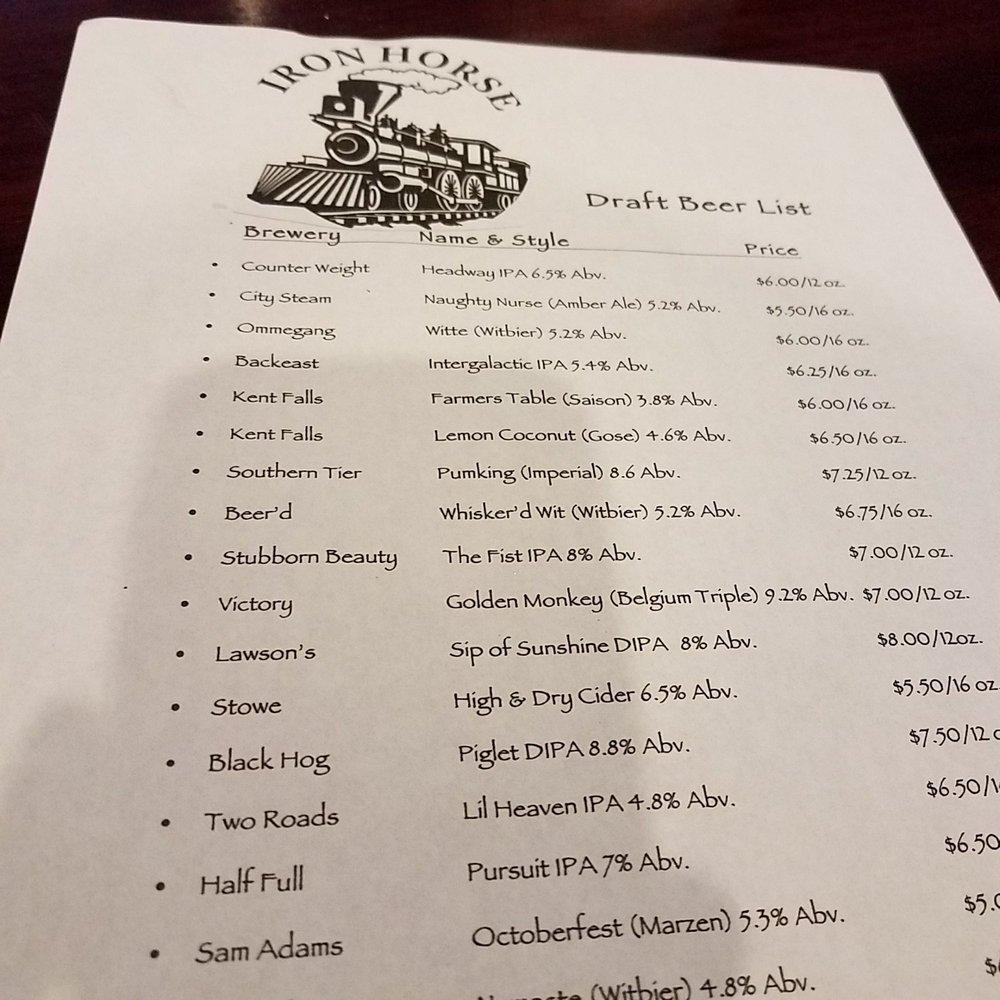 IRON HORSE
Draft Beer List
Brewery Name & Style Price
• Counter Weight Headway IPA 6.5% Abv. $6.00/12 oz.
• City Steam Naughty Nurse (Amber Ale) 5.2% Abv. $5.50/16 oz.
• Ommegang Witte (Witbier) 5.2% Abv. $6.00/16 oz.
• Backeast Intergalactic IPA 5.4% Abv. $6.25/16 oz.
• Kent Falls Farmers Table (Saison) 3.8% Abv. $6.00/16 oz.
• Kent Falls Lemon Coconut (Gose) 4.6% Abv. $6.50/16 oz.
• Southern Tier Pumking (Imperial) 8.6 Abv. $7.25/12 oz.
• Beer'd Whisker'd Wit (Witbier) 5.2% Abv. $6.75/16 oz.
• Stubborn Beauty The Fist IPA 8% Abv. $7.00/12 oz.
• Victory Golden Monkey (Belgium Triple) 9.2% Abv. $7.00/12 oz.
• Lawson's Sip of Sunshine DIPA 8% Abv. $8.00/12oz.
• Stowe High & Dry Cider 6.5% Abv. $5.50/16 oz
• Black Hog Piglet DIPA 8.8% Abv. $7.50/12
• Two Roads Lil Heaven IPA 4.8% Abv. $6.50/1
• Half Full Pursuit IPA 7% Abv. $6.50
• Sam Adams Octoberfest (Marzen) 5.3% Abv. $5.
(Witbier) 4.8% Abv. $